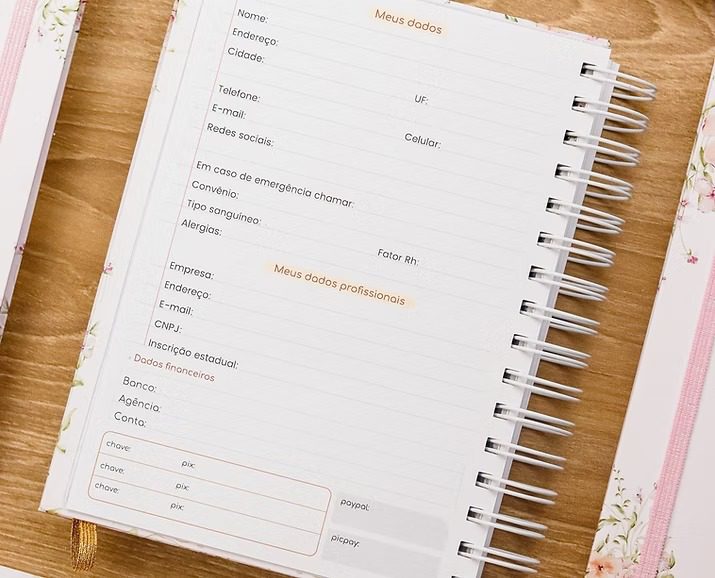 Meus dados
Nome:
Endereço:
Cidade:
UF:
Telefone:
E-mail:
Celular:
Redes sociais:
Em caso de emergência chamar:
Convênio:
Tipo sanguíneo:
Fator Rh:
Alergias:
Meus dados profissionais
Empresa:
Endereço:
E-mail:
CNPJ:
Inscrição estadual:
Dados financeiros
Banco:
Agência:
Conta:
chave: pix:
chave: pix:
chave: pix:
paypal:
picpay: